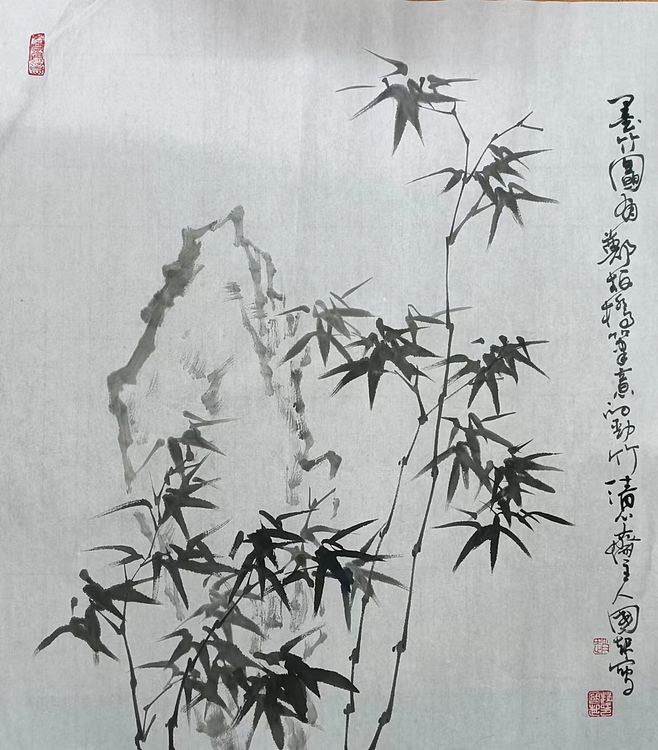 墨竹圖有鄭板橋筆意的勁竹清心齋主人國起寫